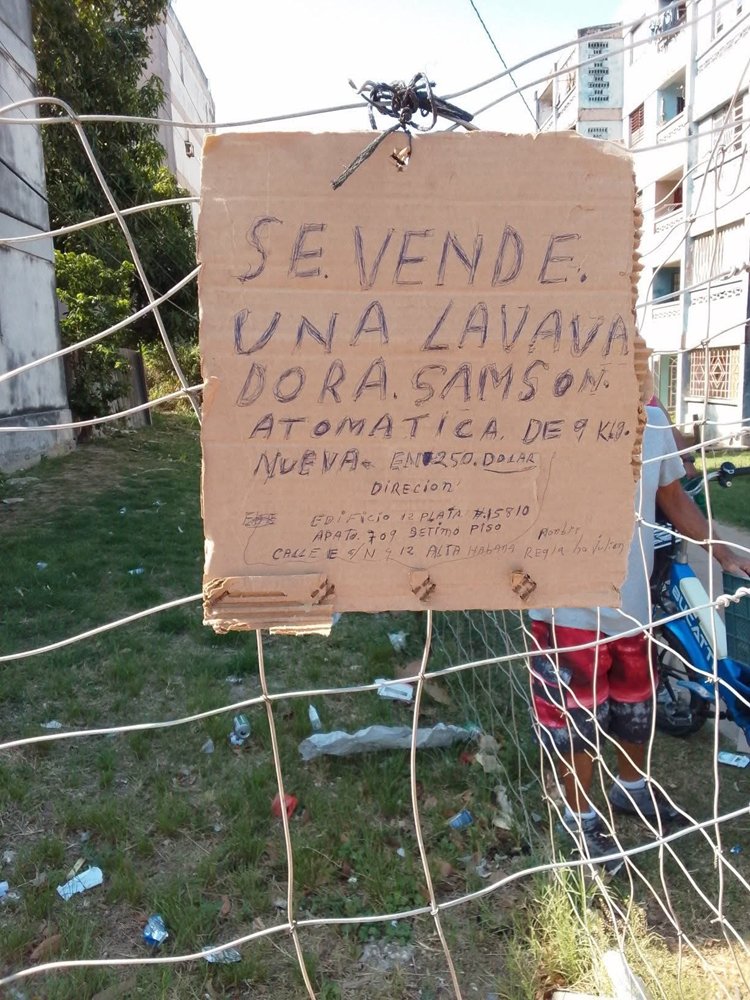 SE. VENDE.
UNA LAVAVA
DORA. SAMSON.
ATOMATICA. DE 9 KLG.
NUEVA. EN 250. DOLAR
DIRECION
EDIFICIO 12 PLATA #.15810
APATO. 709 SETIMO PISO
CALLE E S/N Y 12 ALTA HABANA
Nombre
REGLA
BUCATTI